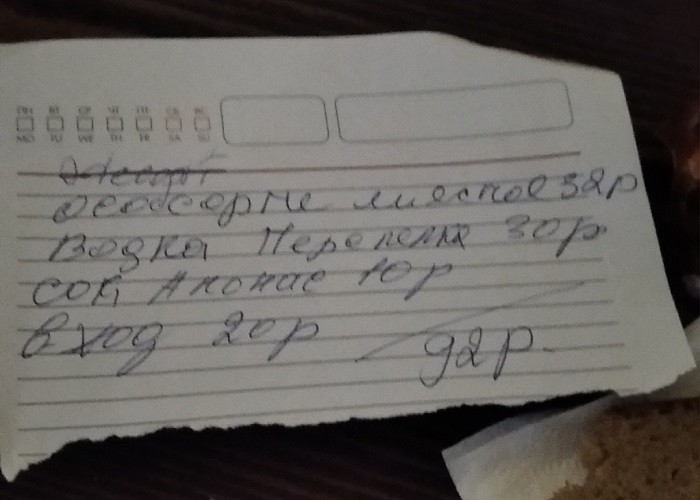 ПН ВТ СР ЧТ ПТ СБ ВС
MO TU WE TH FR SA SU
Ассорти мясное 32р
Водка Перепелка 30р.
Сок Ананас 10р
Вход 20р 92р.